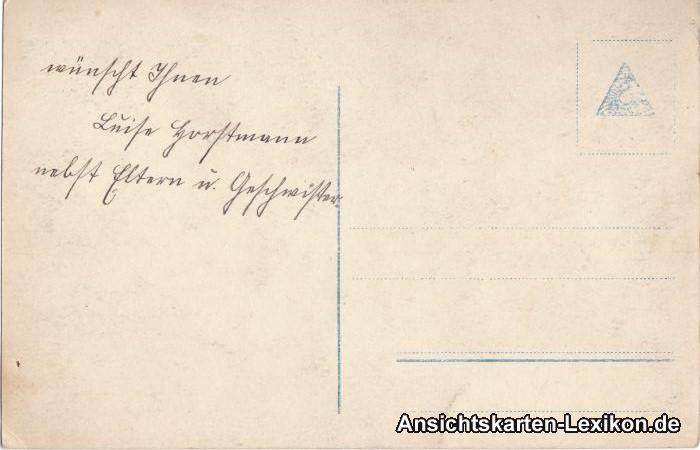 wünscht Ihnen
Luise Horstmann
nebst Eltern u. Geschwister.
Ansichtskarten-Lexikon.de